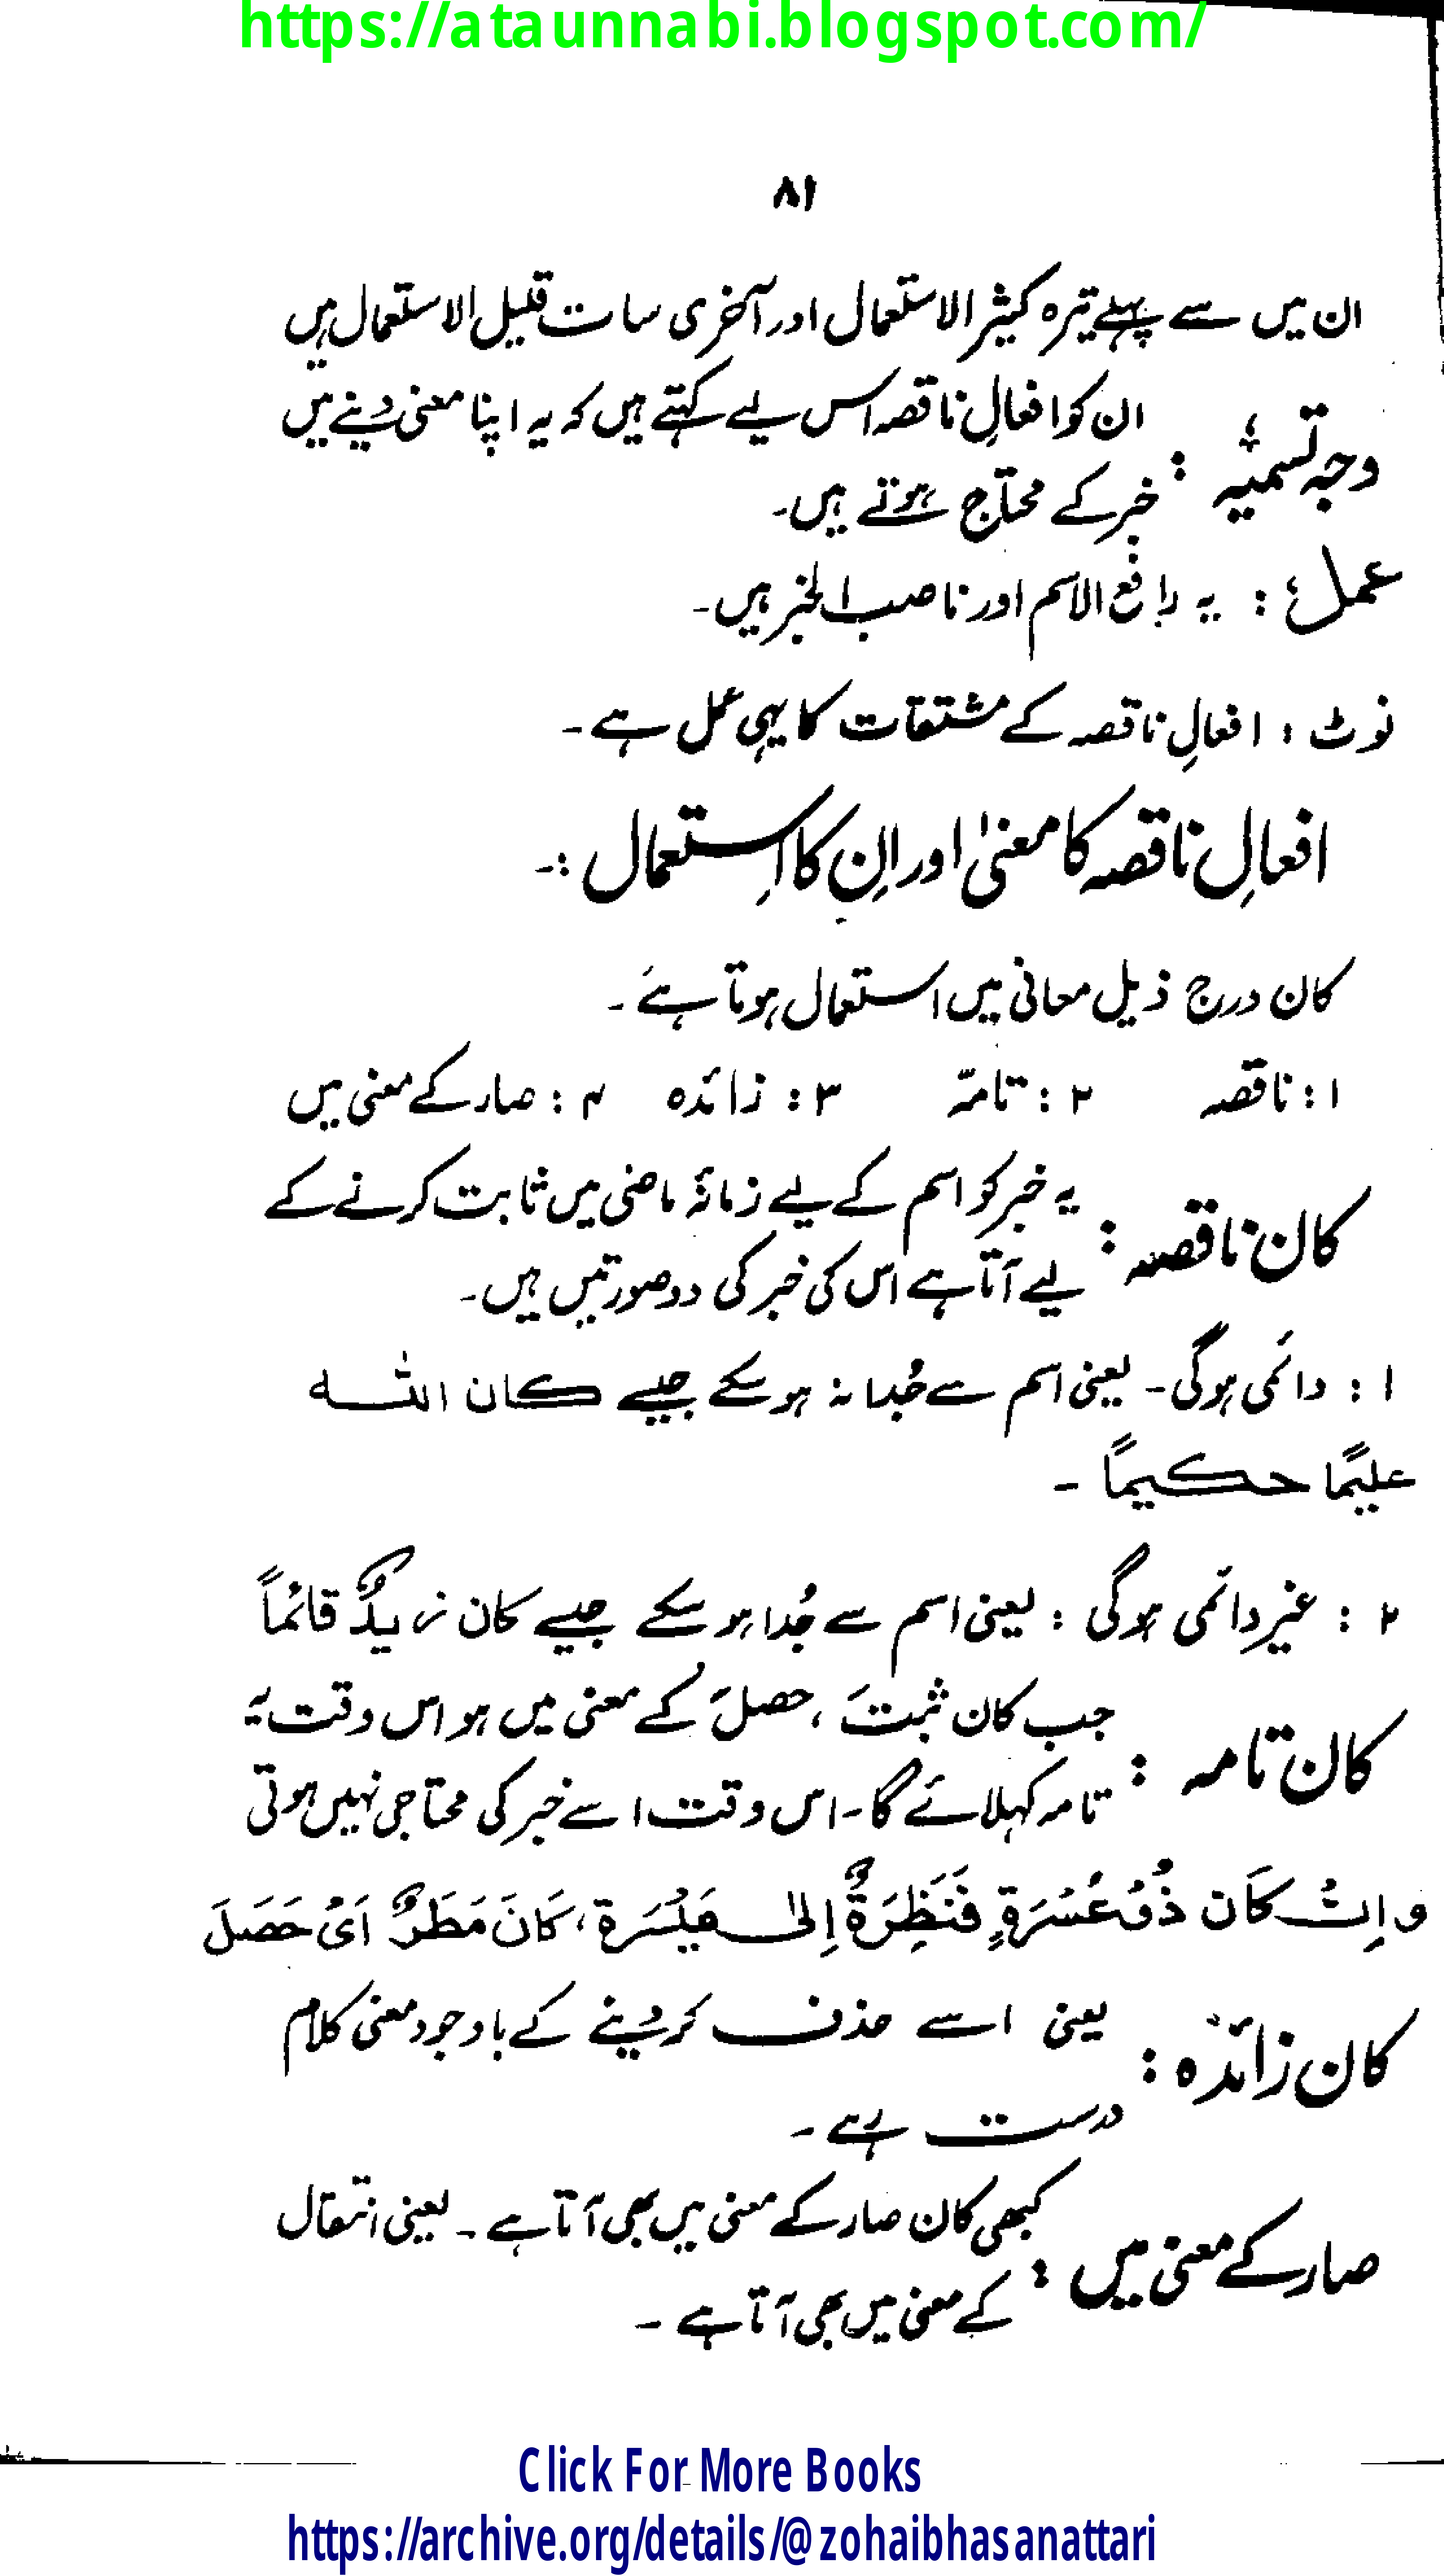 https://ataunnabi.blogspot.com/
۸۱
ان میں سے پہلے تیرہ کثیر الاستعمال اور آخری سات قلیل الاستعمال ہیں
وجہ تسمیہ : ان کو افعالِ ناقصہ اس لیے کہتے ہیں کہ یہ اپنا معنی دینے میں
خبر کے محتاج ہوتے ہیں۔
عمل : یہ رافع الاسم اور ناصب الخبر ہیں۔
نوٹ : افعالِ ناقصہ کے مشتقات کا یہی عمل ہے۔
افعالِ ناقصہ کا معنیٰ اور اِن کا اِستعمال :۔
کان درج ذیل معانی میں استعمال ہوتا ہے۔
۱ : ناقصہ ۲ : تامّہ ۳ : زائدہ ۴ : صار کے معنی میں
کان ناقصہ : یہ خبر کو اسم کے لیے زمانۂ ماضی میں ثابت کرنے کے
لیے آتا ہے اس کی خبر کی دو صورتیں ہیں۔
۱ : دائمی ہوگی۔ یعنی اسم سے جُدا نہ ہوسکے جیسے کان اللہ
علیمًا حکیمًا ۔
۲ : غیر دائمی ہوگی : یعنی اسم سے جُدا ہو سکے جیسے کان زیدٌ قائماً
کان تامہ : جب کان ثبتَ ، حصلَ کے معنی میں ہو اس وقت یہ
تامہ کہلائے گا۔ اس وقت اسے خبر کی محتاجی نہیں ہوتی
و اِنْ کَان ذُوْ عُسْرَةٍ فَنَظِرَةٌ اِلٰی مَیْسَرَة، کَانَ مَطَرٌ اَیْ حَصَلَ
کان زائدہ : یعنی اسے حذف کر دینے کے باوجود معنی کلام
درست رہے۔
صار کے معنی میں : کبھی کان صار کے معنی میں بھی آتا ہے۔ یعنی انتقال
کے معنی میں بھی آتا ہے۔
Click For More Books
https://archive.org/details/@zohaibhasanattari